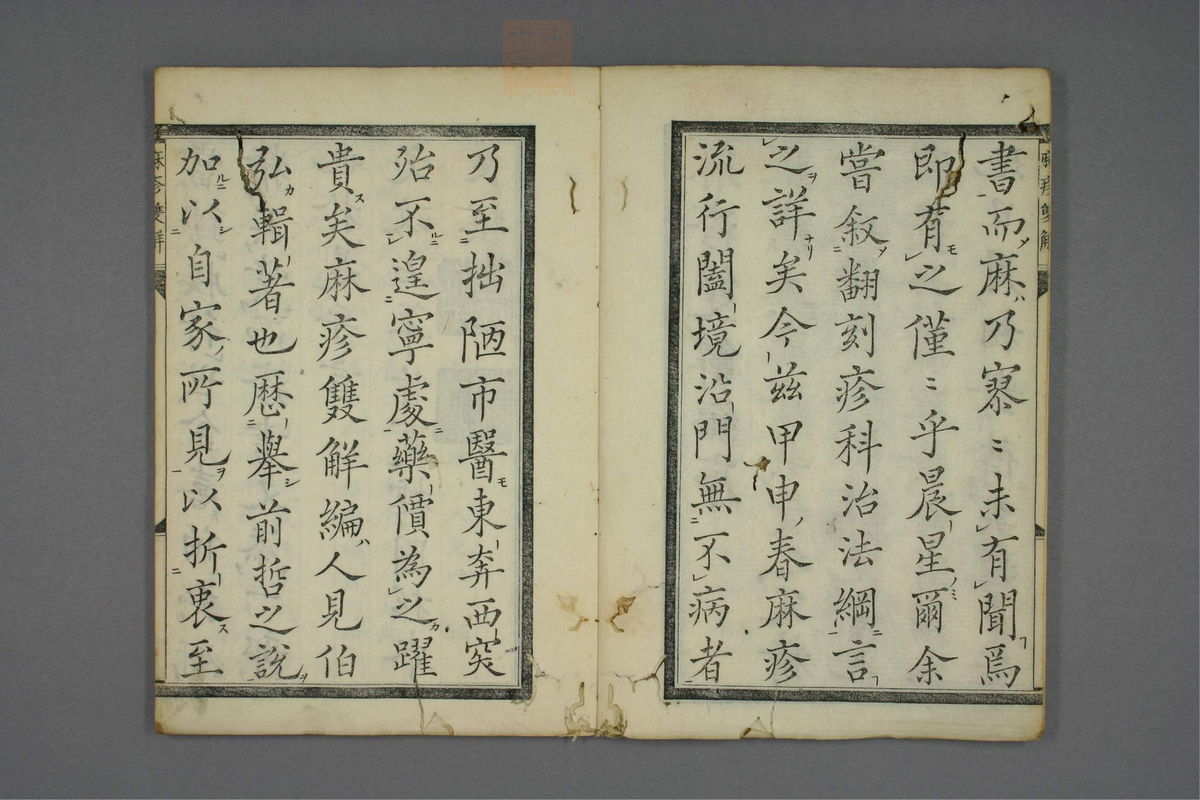 書而麻乃寥〻未有聞焉
即有之僅〻乎晨星爾余
嘗叙翻刻疹科治法綱言
之詳矣今茲甲申春麻疹
流行闔境沿門無不病者
乃至拙陋市醫東奔西突
殆不遑寧處藥價為之躍
貴矣麻疹雙解編人見伯
弘輯著也歷舉前哲之說
加以自家所見以折衷至
麻疹雙解